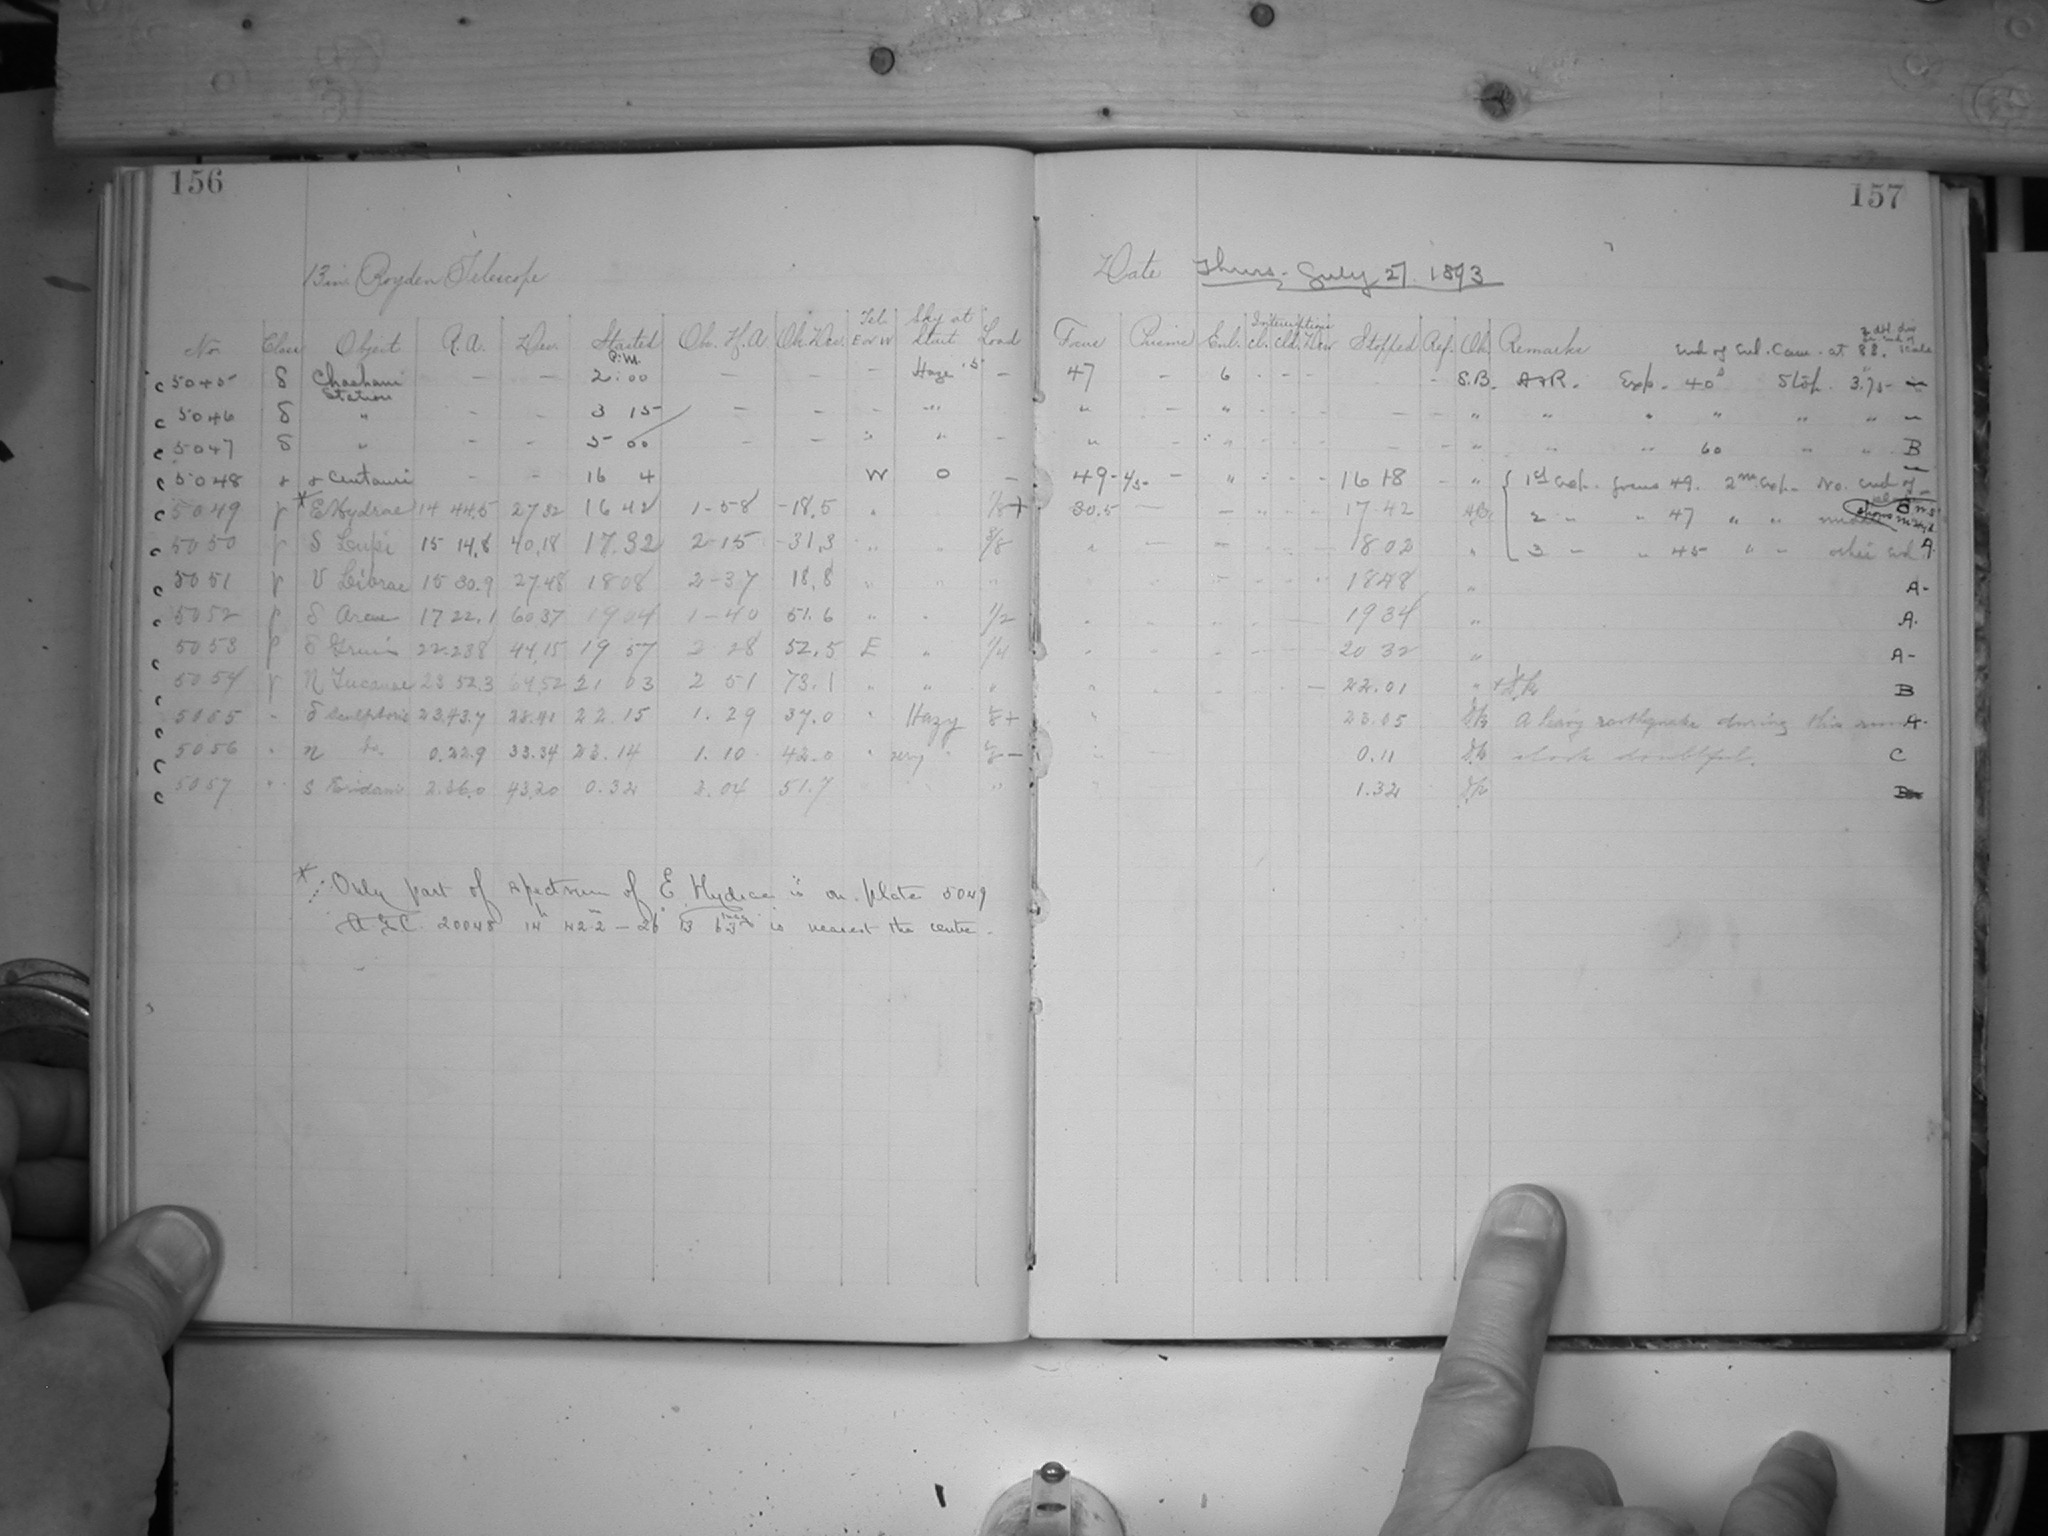 156
13 in. Boyden Telescope
No. Class Object R.A. Dec. Started Ob. H.A. Ob. Dec. Tel. E or W Sky at Start Load
P.M.
c 5045 δ Chachani Station - - - 2:00 - - - Haze .5 -
c 5046 δ " - - 3 15 - - - " -
c 5047 δ " - - 5 00 - - " " -
c 5048 Centauri - - 16 4 W 0 -
c 5049 * E Hydrae 14 44.5 27 32 16 42 1-58 -18.5 " 
c 5050 S Lupi 15 14.8 40.18 17.32 2-15 -31.3 " " 3/8
c 5051 U Librae 15 30.9 27.48 18 08 2-37 18.8 " " "
c 5052 δ Arae 17 22.1 60 37 19 04 1-40 51.6 " " 1/2
c 5053 Gruis 22 23 8 44.15 19 57 2 28 52.5 E " 1/4
c 5054 Tucanae 23 52.3 64.52 21 03 2 51 73.1 " " "
c 5055 - δ Sculptoris 23.43.7 28.41 22.15 1.29 37.0 " Hazy
c 5056 " η Do. 0.22.9 33.34 23.14 1.10 42.0 " very "
c 5057 " s Eridani 2.36.0 43.20 0.32 2.04 51.7 "
* Only part of spectrum of E. Hydrae is on plate 5049
A.G.C. 20048 14h 42m.2 - 26° 13 is nearest the centre.
157
Date Thurs. July 27. 1893
Focus Prisms Enl. Interruptions Cl. Cld. Dew Stopped Ref. Ob. Remarks End of Enl. Cam. at 88.
47 - 6 - - - - S.B. A & R. Exp. 40s Stop. 3.75 -
" - " - - - - - " " " " " " -
" - " - - - - - " " " 60 " " B
49-45- - " - - - 16 18 - " 1st exp. focus 49. 2nd exp. No. end of
30.5 - - " - - - 17 42 2 " " 47 " "
" - - " - - - 18 02 " 3 " " 45 " " other end A
18 28 " A-
19 34 " A.
20 32 " A-
22.01 " B
23.05 A heavy earthquake during this A-
0.11 clock doubtful. C
1.32